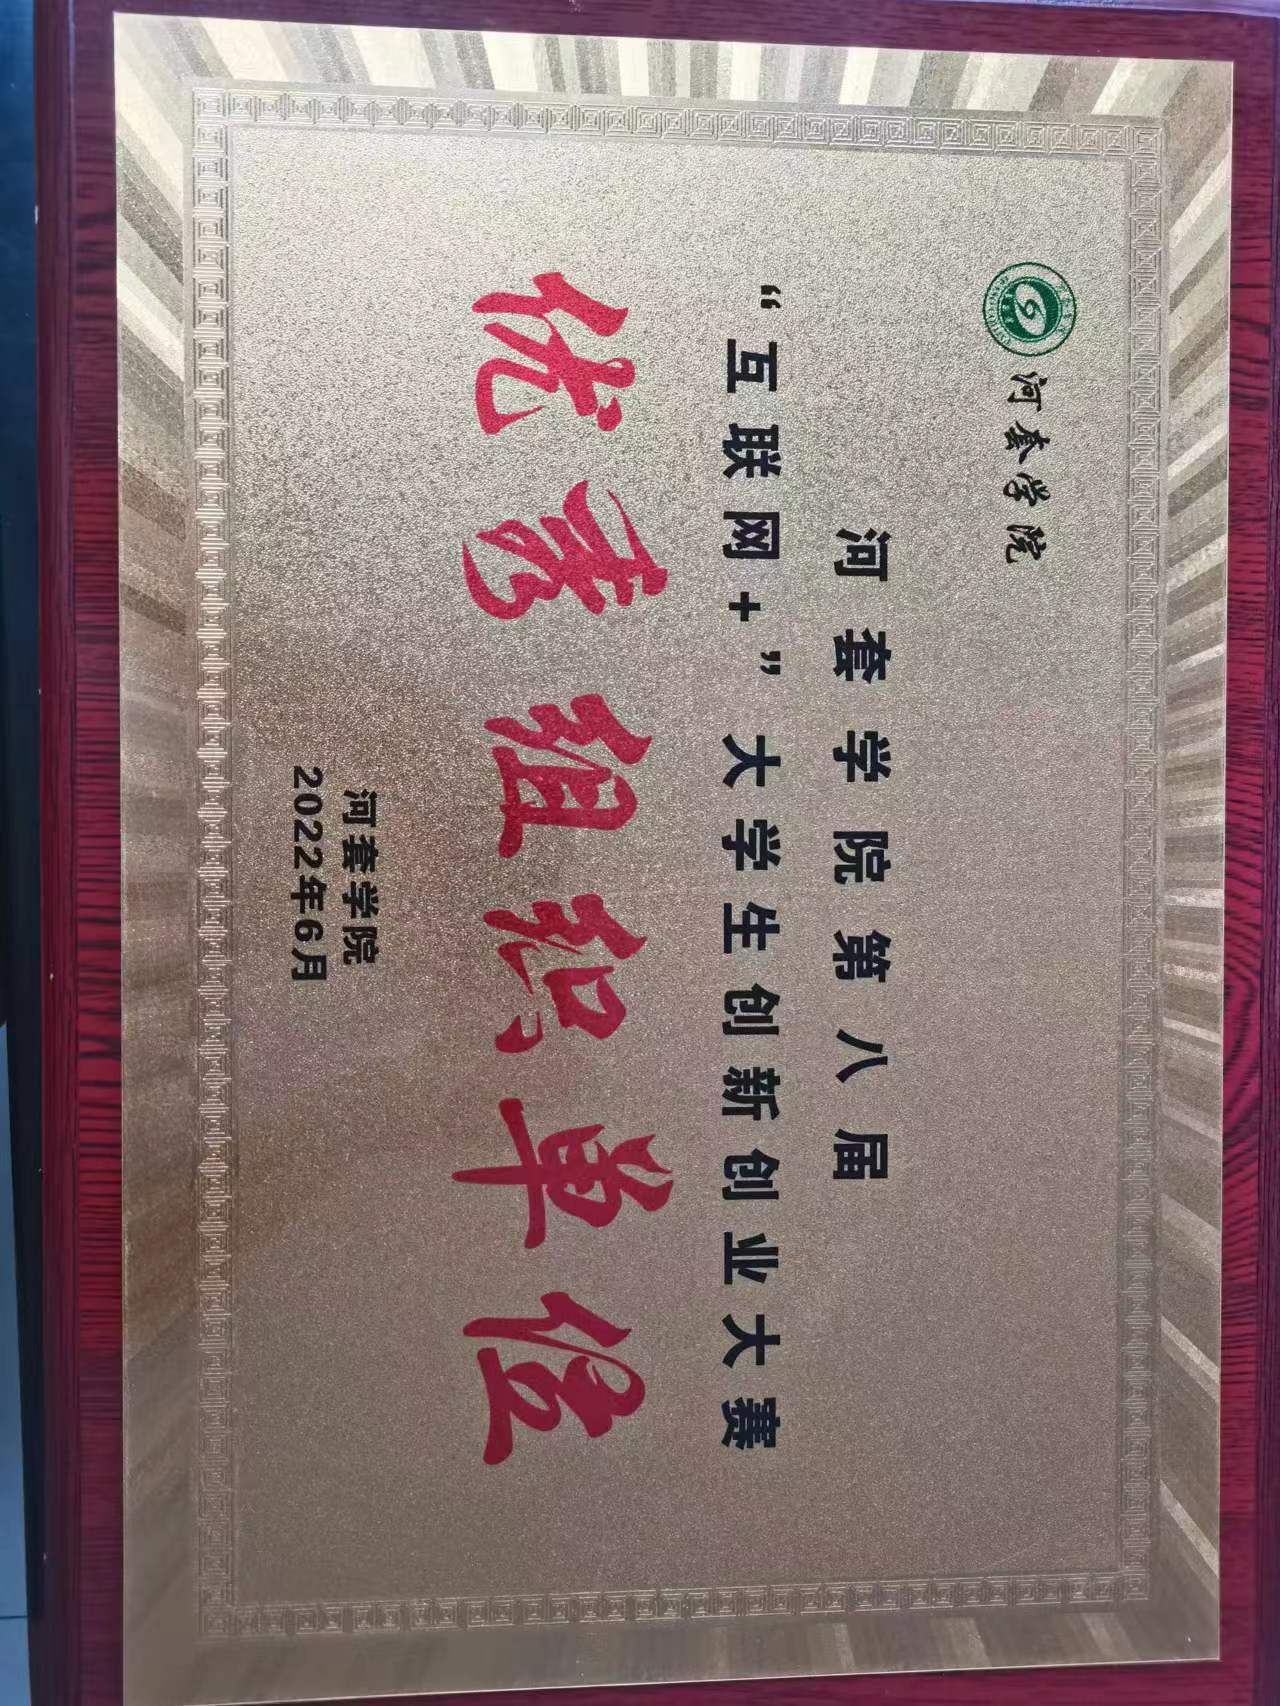 河套学院
河套学院第八届
“互联网+”大学生创新创业大赛
优秀组织单位
河套学院
2022年6月